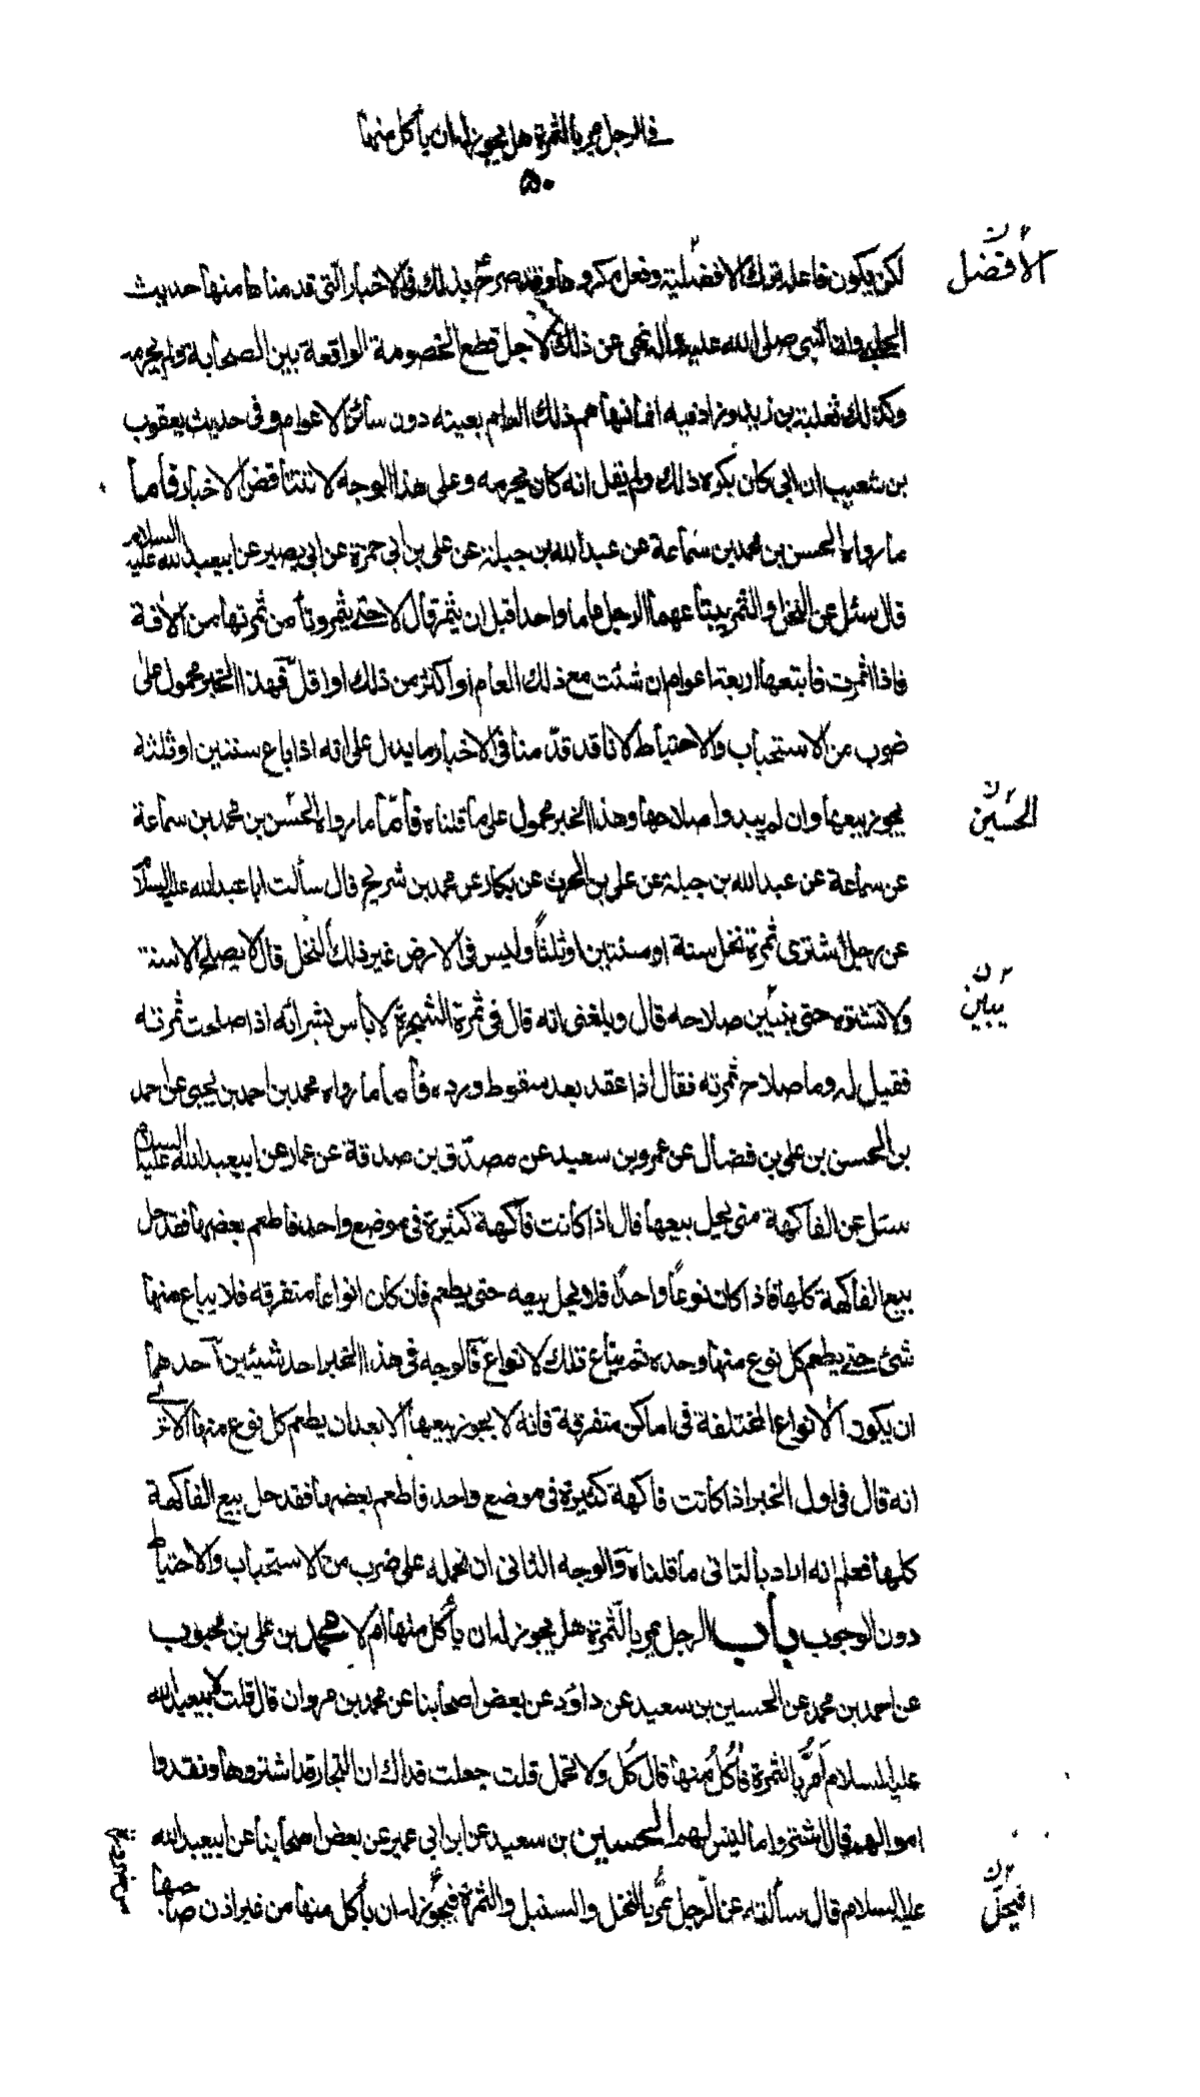 في الرجل يمر بالثمرة هل يجوز له ان يأكل منها
٥٠
لكن يكون فاعله ترك الافضلية وفعل مكروها وقد صرح بذلك في الاخبار التي قد مناها منها حديث
الافضل
الحلبي وان النبي صلى الله عليه وآله نهى عن ذلك لاجل قطع الخصومة الواقعة بين الصحابة ولم يحرمه
وكذلك ثعلبة بن زيد وزاد فيه انما نهاهم ذلك العام بعينه دون سائر الاعوام وفي حديث يعقوب
بن شعيب ان ابي كان يكره ذلك ولم يقل انه كان يحرمه وعلى هذا الوجه لا تتناقض الاخبار فأما
ما رواه الحسن بن محمد بن سماعة عن عبد الله بن جبلة عن علي بن ابي حمزة عن ابي بصير عن ابيعبد الله عليه السلام
قال سئل عن النخل والثمر يبتاعهما الرجل عاما واحدا قبل ان يثمر قال لا حتى يثمر وتأمن ثمرتها من الآفة
فاذا اثمرت فابتعها اربعة اعوام ان شئت مع ذلك العام او اكثر من ذلك او اقل فهذا الخبر محمول على
ضرب من الاستحباب والاحتياط لانا قد قدمنا في الاخبار ما يدل على انه اذا باع سنتين او ثلثة
يجوز بيعها وان لم يبد واصلاحها وهذا الخبر محمول على ما قلناه فأما ما رواه الحسن بن محمد بن سماعة
الحسين
عن سماعة عن عبد الله بن جبلة عن علي بن الحرث عن بكار عن محمد بن شريح قال سألت ابا عبد الله عليه السلام
عن رجل اشترى ثمرة نخل سنة او سنتين او ثلثا وليس في الارض غير ذلك النخل قال لا يصلح الا سنة
ولا تشتره حتى يتبين صلاحه قال وبلغني انه قال في ثمرة الشجرة لا بأس بشرائه اذا صلحت ثمرته
يبين
فقيل له وما صلاح ثمرته فقال اذا عقد بعد سقوط ورده فأما ما رواه محمد بن احمد بن يحيى عن احمد
بن الحسن بن علي بن فضال عن عمرو بن سعيد عن مصدق بن صدقة عن عمار عن ابيعبد الله عليه السلام
سئل عن الفاكهة متى يحل بيعها قال اذا كانت فاكهة كثيرة في موضع واحد فاطعم بعضها فقد حل
بيع الفاكهة كلها فاذا كان نوعا واحدا فلا يحل بيعه حتى يطعم فان كان انواعا متفرقه فلا يباع منها
شئ حتى يطعم كل نوع منها وحده ثم يباع تلك الانواع فالوجه في هذا الخبر احد شيئين احدهما
ان يكون الانواع المختلفة في اماكن متفرقة فانه لا يجوز بيعها الا بعد ان يطعم كل نوع منها الا ترى
انه قال في اول الخبر اذا كانت فاكهة كثيرة في موضع واحد فاطعم بعضها فقد حل بيع الفاكهة
كلها فعلم انه اراد بالثاني ما قلناه والوجه الثاني ان نحمله على ضرب من الاستحباب والاحتياط
دون الوجوب باب الرجل يمر بالثمرة هل يجوز له ان يأكل منها أم لا محمد بن علي بن محبوب
عن احمد بن محمد عن الحسين بن سعيد عن داود عن بعض اصحابنا عن محمد بن مروان قال قلت لابيعبد الله
عليه السلام أمر بالثمرة فآكل منها قال كل ولا تحمل قلت جعلت فداك ان التجار قد اشتروها ونقدوا
اموالهم قال اشتروا ما ليس لهم الحسين بن سعيد عن ابن ابي عمير عن بعض اصحابنا عن ابيعبد الله
عليه السلام قال سألته عن الرجل يمر بالنخل والسنبل والثمرة فيجوز له ان يأكل منها من غير اذن صاحبها
افيحل